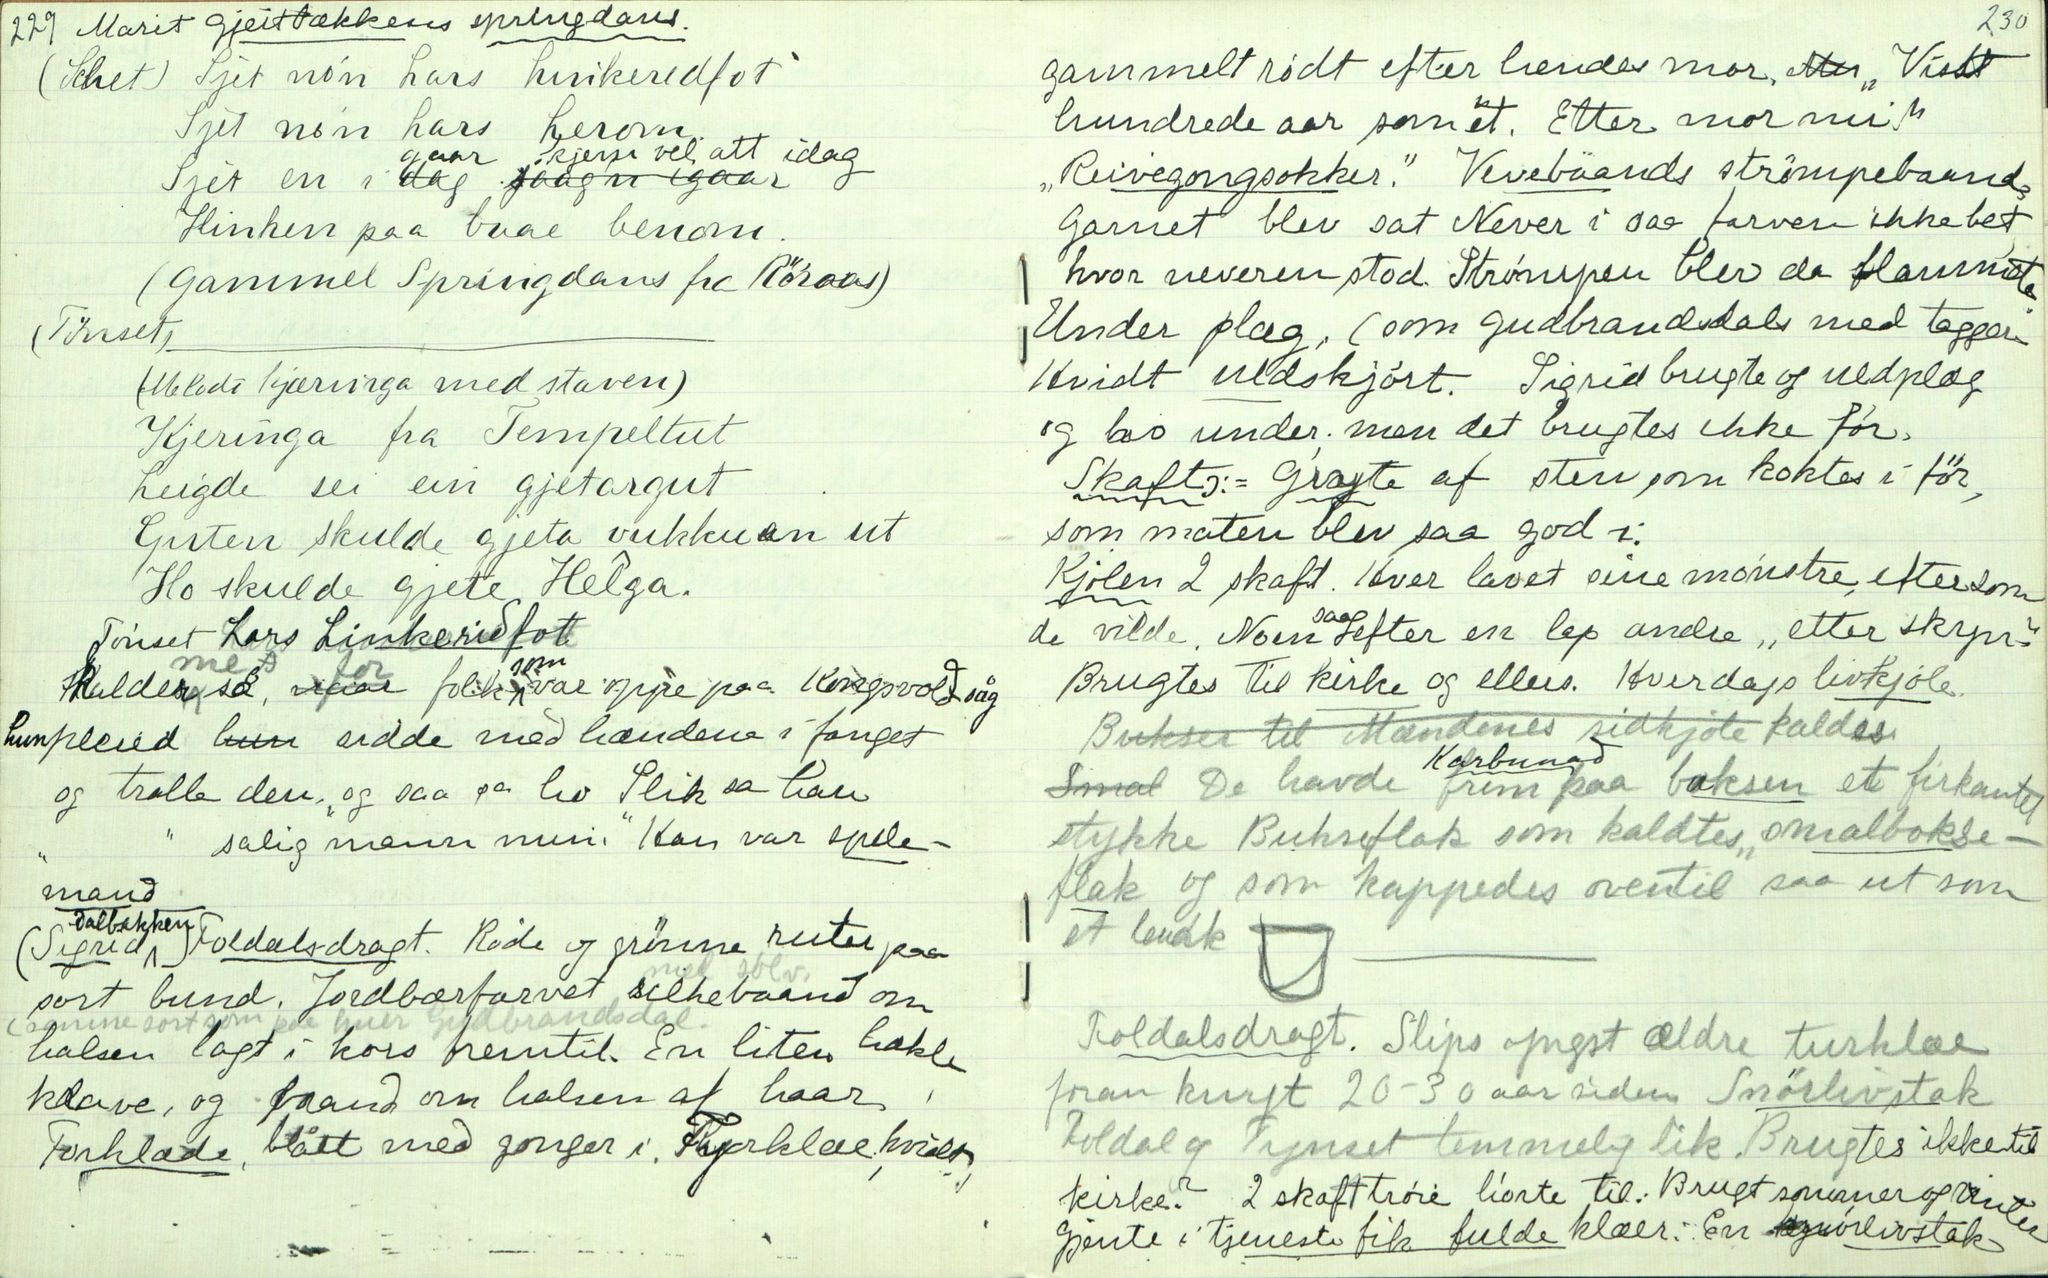 229 Marit Gjeitbækkens springdans.
(Schet) Sjet nón Lars hinkeredfot
Sjet nón Lars herom.
gaar kjersi vel att idag
Sjet en i dag jaagn igaar
Hinken paa baae benom.
(Gammel Springdans fra Röraas)
(Tönset)
(Melodi Kjæringa med staven)
Kjeringa fra Tempeltut
Leigde sei ein gjetargut
Guten skulde gjeta vukkuan ut
Ho skulde gjete Helga.
Tönset Lars Linkeridfot
me for som
kalder sö, naar folk var oppe paa Kongsvold såg
hun sidde med hændene i fanget
og tralla den, og saa sa ho Slik sa han
" " salig mann min." Han var spele-
mand
dalbakken
(Sigrid) Foldalsdragt. Röde og grönne ruter paa
med sölv.
sort bund. Jordbærfarvet silkebaand om
(samme sort som paa huer Gudbrandsdal.
halsen lagt i kors fremtil. En liten hekle
klave, og baand om halsen af haar
Forklæde, blått med gonger i. Tyrklæe, hvidt,
230
gammelt rödt efter hendes mor. "Visst
hundrede aar som et. Etter mor mi"
"Reivegongsokker." Vevebåands strömpebaand,
Garnet blev sat Never i saa farven ikke bet
hvor neveren stod. Strömpen blev da flammete
Under plæg, (som Gudbrandsdals med taggeri
Hvidt uldskjört. Sigrid brugte og uldplæg
og lao under. men det brugtes ikke för.
Skaft ɔ: = Gryte af sten som koktes i för,
som maten blev saa god i.
Kjolen 2 skaft. Hver lavet sine mönstre, eftersom
de vilde. Noen saag efter en lap andre "etter skrpr"
Brugtes til kirke og ellers. Hverdags livkjole.
Bukser til Mændenes sidkjole kaldes
Karbunad
Smal De havde frem paa boksen et firkantet
stykke Bukseflak som kaldtes "smalbokse-
flak og som kappedes oventil saa ut som
et lauk
Foldalsdragt. Slips yngst ældre turklæe
foran knyt 20-30 aar siden Snörlivstak
Foldal og Tynset temmelig lik. Brugtes ikke til
kirke? 2 skafttröie hörte til. Brugt sommer og vinter
Gjente i tjeneste fik fulde klæer: En snörlivstak